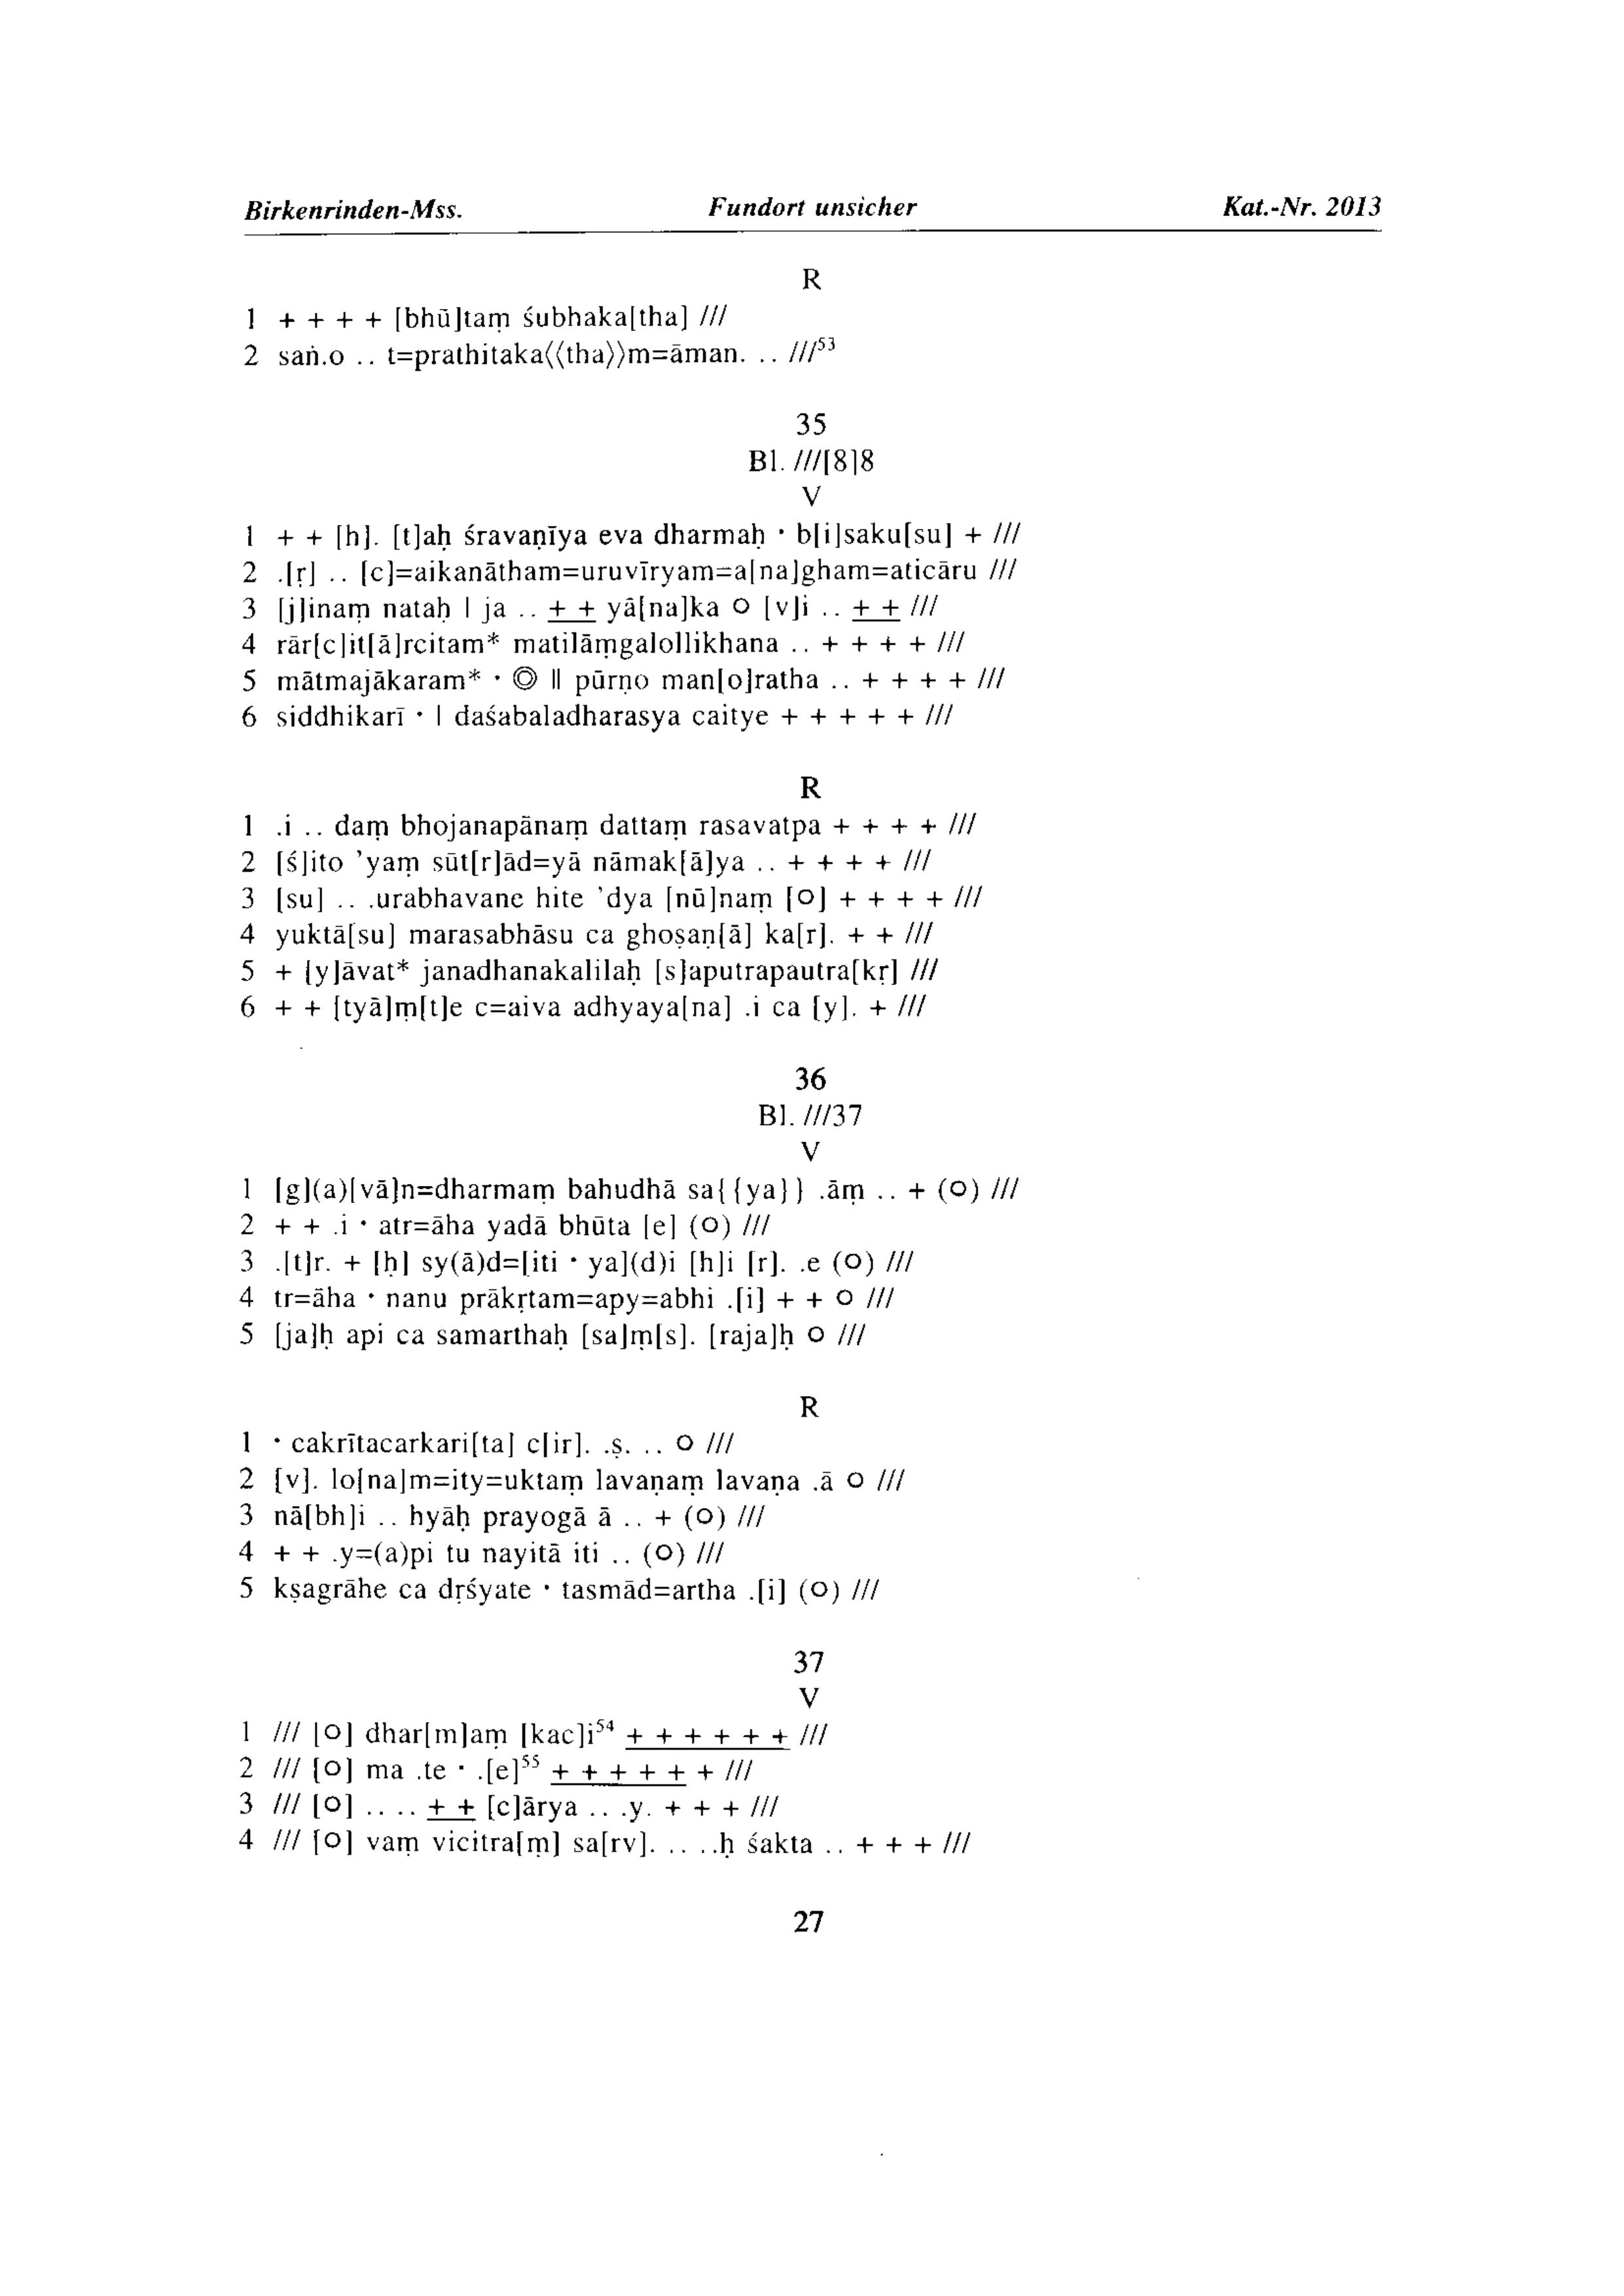 Birkenrinden-Mss. Fundort unsicher Kat.-Nr. 2013
R
1 + + + + [bhū]taṃ śubhaka[tha] ///
2 saṅ.o .. t=prathitaka⟨⟨tha⟩⟩m=āman. .. ///⁵³
35
Bl. ///[8]8
V
1 + + [h]. [t]aḥ śravaṇīya eva dharmaḥ · b[i]saku[su] + ///
2 .[ṛ] .. [c]=aikanātham=uruvīryam=a[na]gham=aticāru ///
3 [j]inaṃ nataḥ | ja .. + + yā[na]ka ○ [v]i .. + + ///
4 rār[c]it[ā]rcitam* matilāṃgalollikhana .. + + + + ///
5 mātmajākaram* · ◎ || pūrṇo man[o]ratha .. + + + + ///
6 siddhikarī · | daśabaladharasya caitye + + + + + ///
R
1 .i .. daṃ bhojanapānaṃ dattaṃ rasavatpa + + + + ///
2 [ś]ito ’yaṃ sūt[r]ād=yā nāmak[ā]ya .. + + + + ///
3 [su] .. .urabhavane hite ’dya [nū]naṃ [○] + + + + ///
4 yuktā[su] marasabhāsu ca ghoṣaṇ[ā] ka[r]. + + ///
5 + [y]āvat* janadhanakalilaḥ [s]aputrapautra[kṛ] ///
6 + + [tyā]ṃ[t]e c=aiva adhyaya[na] .i ca [y]. + ///
36
Bl. ///37
V
1 [g](a)[vā]n=dharmaṃ bahudhā sa{{ya}} .āṃ .. + (○) ///
2 + + .i · atr=āha yadā bhūta [e] (○) ///
3 .[t]r. + [ḥ] sy(ā)d=[iti · ya](d)i [h]i [r]. .e (○) ///
4 tr=āha · nanu prākṛtam=apy=abhi .[i] + + ○ ///
5 [ja]ḥ api ca samarthaḥ [sa]ṃ[s]. [raja]ḥ ○ ///
R
1 · cakrītacarkari[ta] c[ir]. .ṣ. .. ○ ///
2 [v]. lo[na]m=ity=uktaṃ lavaṇaṃ lavaṇa .ā ○ ///
3 nā[bh]i .. hyāḥ prayogā ā .. + (○) ///
4 + + .y=(a)pi tu nayitā iti .. (○) ///
5 kṣagrāhe ca dṛśyate · tasmād=artha .[i] (○) ///
37
V
1 /// [○] dhar[m]aṃ [kac]i⁵⁴ + + + + + + ///
2 /// [○] ma .te · .[e]⁵⁵ + + + + + + ///
3 /// [○] .. .. + + [c]ārya .. .y. + + + ///
4 /// [○] vaṃ vicitra[ṃ] sa[rv]. .. ..ḥ śakta .. + + + ///
27